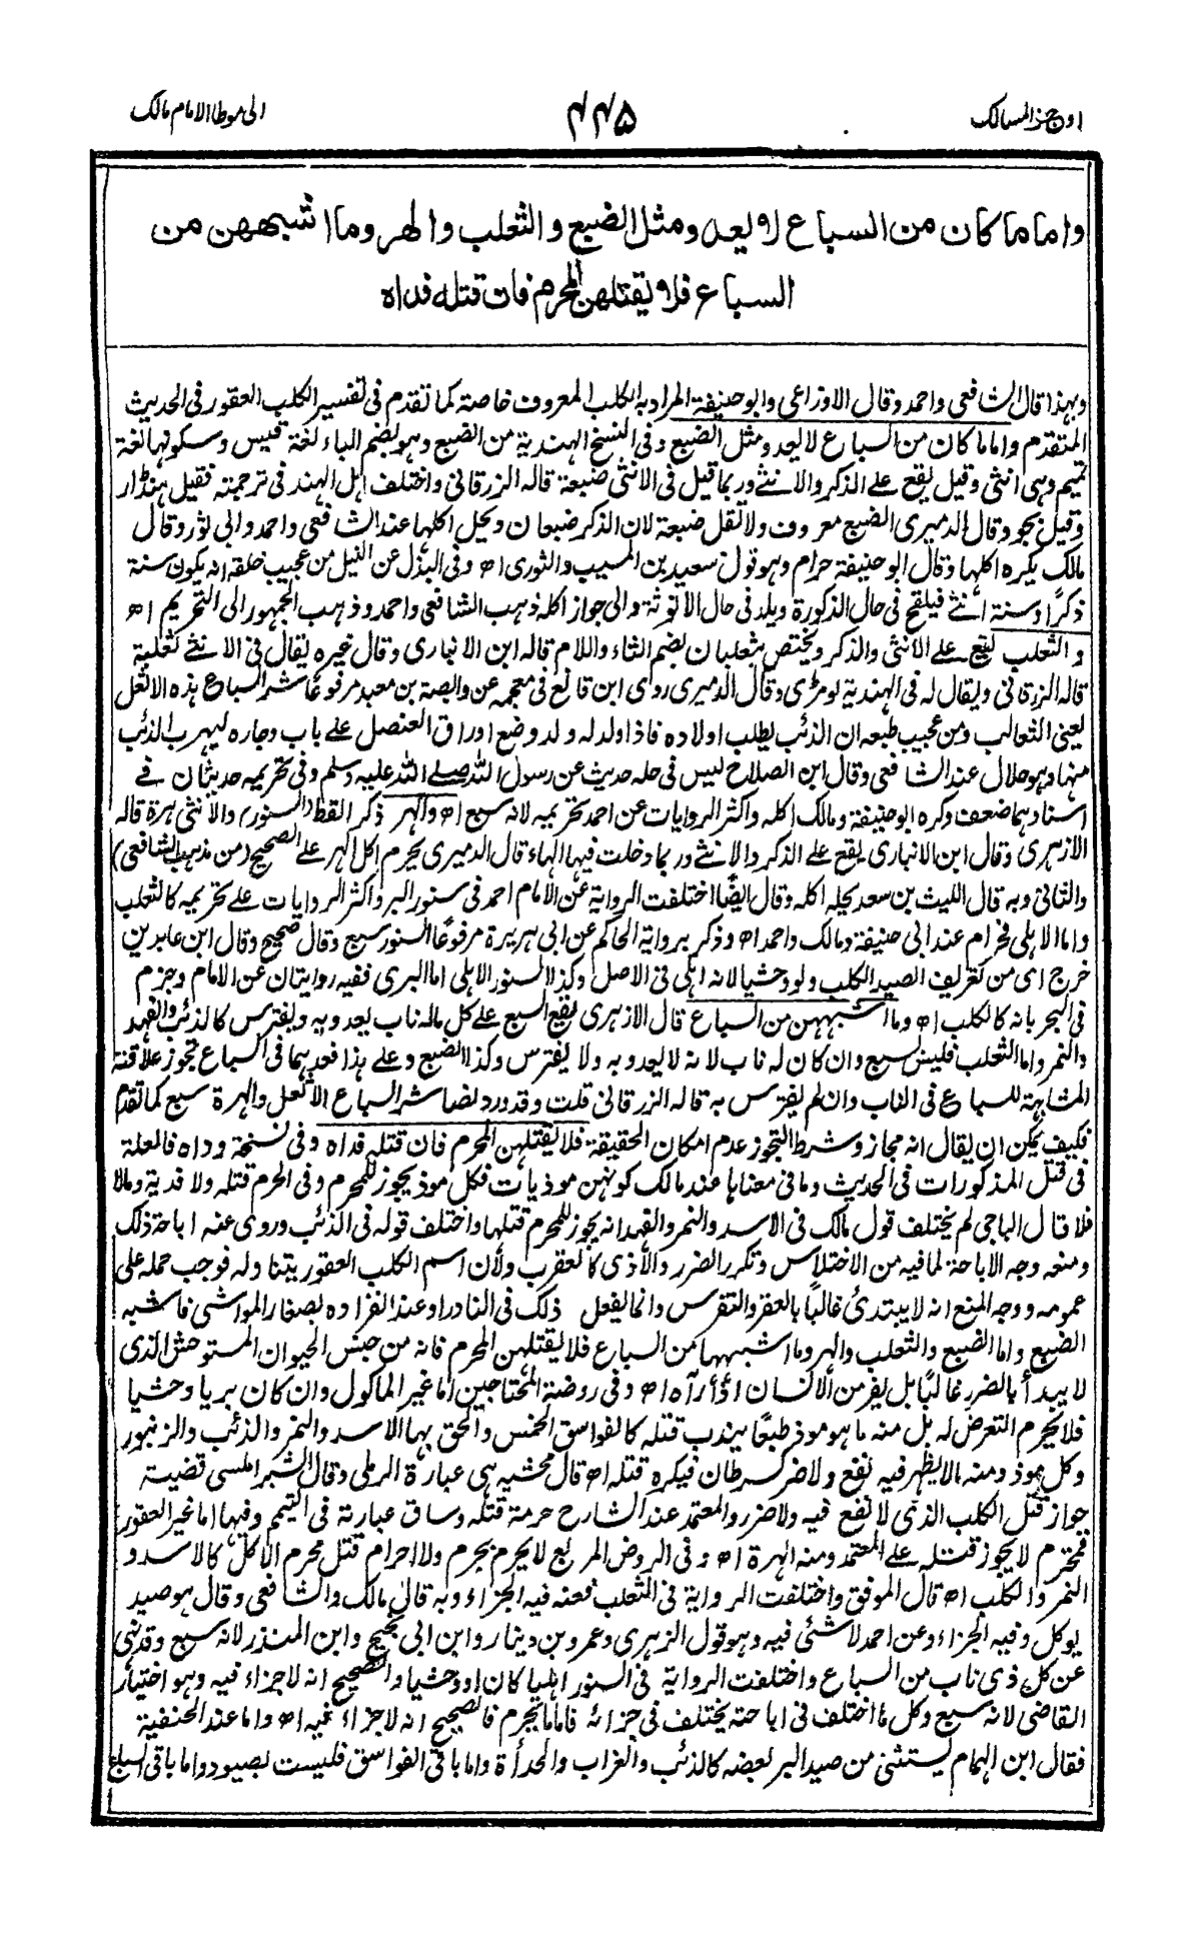 اوجز المسالك
۴۴۵
الى موطا الامام مالك
واما ما كان من السباع لا يعدو مثل الضبع والثعلب والهر وما اشبههن من
السباع فلا يقتلهن المحرم فان قتله فداه
وبهذا قال الشافعى واحمد وقال الاوزاعى وابو حنيفة المراد به الكلب المعروف خاصة كما تقدم فى تفسير الكلب العقور فى الحديث
المتقدم واما ما كان من السباع لا يعدو مثل الضبع وفى النسخ الهندية من الضبع وهو بضم الباء لغة قيس وسكونها لغة
تميم وهى انثى وقيل يقع على الذكر والانثى وربما قيل فى الانثى ضبعة قاله الزرقانى واختلف اهل الهند فى ترجمته فقيل هنڈار
وقيل بجو وقال الدميرى الضبع معروف ولا تقل ضبعة لان الذكر ضبعان ويحل اكلها عند الشافعى واحمد وابى ثور وقال
مالك يكره اكلها وقال ابو حنيفة حرام وهو قول سعيد بن المسيب والثورى اه وفى البذل عن النيل من عجيب خلقه انه يكون سنة
ذكرًا وسنة انثى فيلقح فى حال الذكورة ويلد فى حال الانوثة والى جواز اكله ذهب الشافعى واحمد وذهب الجمهور الى التحريم اه
والثعلب يقع على الانثى والذكر ويختص بثعلبان بضم الثاء واللام قاله ابن الانبارى وقال غيره يقال فى الانثى ثعلبة
قاله الزرقانى ويقال له فى الهندية لومڑى وقال الدميرى روى ابن قانع فى معجمه عن وابصة بن معبد مرفوعا شر السباع هذه الاثعل
يعنى الثعالب ومن عجيب طبعه ان الذئب يطلب اولاده فاذا ولد له ولد وضع اوراق العنصل على باب وجاره ليهرب الذئب
منها وهو حلال عند الشافعى وقال ابن الصلاح ليس فى حله حديث عن رسول الله صلى الله عليه وسلم وفى تحريمه حديثان فى
اسنادهما ضعف وكره ابو حنيفة ومالك اكله واكثر الروايات عن احمد تحريمه لانه سبع اه والهر ذكر القط (السنور) والانثى هرة قاله
الازهرى وقال ابن الانبارى يقع على الذكر والانثى وربما دخلت فيها الهاء قال الدميرى يحرم اكل الهر على الصحيح (من مذهب الشافعى)
والثانى وبه قال الليث بن سعد يحل اكله وقال ايضًا اختلفت الرواية عن الامام احمد فى سنور البر واكثر الروايات على تحريمه كالثعلب
واما الاهلى فحرام عند ابى حنيفة ومالك واحمد اه وذكر برواية الحاكم عن ابى هريرة مرفوعًا السنور سبع وقال صحيح وقال ابن عابدين
خرج اى من تعريف الصيد الكلب ولو وحشيا لانه اهلى فى الاصل وكذا السنور الاهلى اما البرى ففيه روايتان عن الامام وجزم
فى البحر بانه كالكلب اه وما اشبههن من السباع قال الازهرى يقع السبع على كل ماله ناب يعدو به ويفترس كالذئب والفهد
والنمر واما الثعلب فليس بسبع وان كان له ناب لانه لا يعدو به ولا يفترس وكذا الضبع وعلى هذا فعدهما فى السباع تجوز علاقته
المشابهة للسباع فى الناب وان لم يفترس به قاله الزرقانى قلت وقد ورد نصا شر السباع الاثعل والهرة سبع كما تقدم
فكيف يمكن ان يقال انه مجاز وشرط التجوز عدم امكان الحقيقة فلا يقتلهن المحرم فان قتله فداه وفى نسخة وداه فالعلة
فى قتل المذكورات فى الحديث وما فى معناها عند مالك كونهن موذيات فكل موذ يجوز للمحرم وفى الحرم قتله ولا فدية ومالا
فلا قال الباجى لم يختلف قول مالك فى الاسد والنمر والفهد انه يجوز للمحرم قتلها واختلف قوله فى الذئب وروى عنه اباحة ذلك
ومنعه وجه الاباحة لما فيه من الاختلاس وتكرر الضرر والاذى كالعقرب ولان اسم الكلب العقور يتناوله فوجب حمله على
عمومه ووجه المنع انه لا يبتدئ غالبًا بالعقر والتفرس وانما يفعل ذلك فى النادر او عند انفراده بصغار المواشى فاشبه
الضبع واما الضبع والثعلب والهر وما اشبهها من السباع فلا يقتلهن المحرم فانه من جنس الحيوان المستوحش الذى
لا يبدأ بالضرر غالبًا بل يفر من الانسان اذا رآه اه وفى روضة المحتاجين اما غير الماكول وان كان بريا وحشيا
فلا يحرم التعرض له بل منه ما هو موذ طبعًا يندب قتله كالفواسق الخمس والحق بها الاسد والنمر والذئب والزنبور
وكل موذ ومنه مالا يظهر فيه نفع ولا ضر كسرطان فيكره قتله اه قال محشيه هى عبارة الرملى وقال الشبراملسى قضيته
جواز قتل الكلب الذى لا نفع فيه ولا ضرر والمعتمد عند الشارح حرمة قتله وساق عبارته فى التيمم وفيها اما غير العقور
فمحترم لا يجوز قتله على المعتمد ومنه الهرة اه وفى الروض المربع لا يحرم بحرم ولا احرام قتل محرم الاكل كالاسد و
النمر والكلب اه قال الموفق واختلفت الرواية فى الثعلب فعنه فيه الجزاء وبه قال مالك والشافعى وقال هو صيد
يوكل وفيه الجزاء وعن احمد لا شئ فيه وهو قول الزهرى وعمرو بن دينار وابن ابى نجيح وابن المنذر لانه سبع وقد نهى
عن كل ذى ناب من السباع واختلفت الرواية فى السنور اهليا كان او وحشيا والصحيح انه لا جزاء فيه وهو اختيار
القاضى لانه سبع وكل ما اختلف فى اباحته يختلف فى جزائه فاما ما يحرم فالصحيح انه لا جزاء فيه اه واما عند الحنفية
فقال ابن الهمام يستثنى من صيد البر بعضه كالذئب والغراب والحدأة واما باقى الفواسق فليست بصيود واما باقى السباع